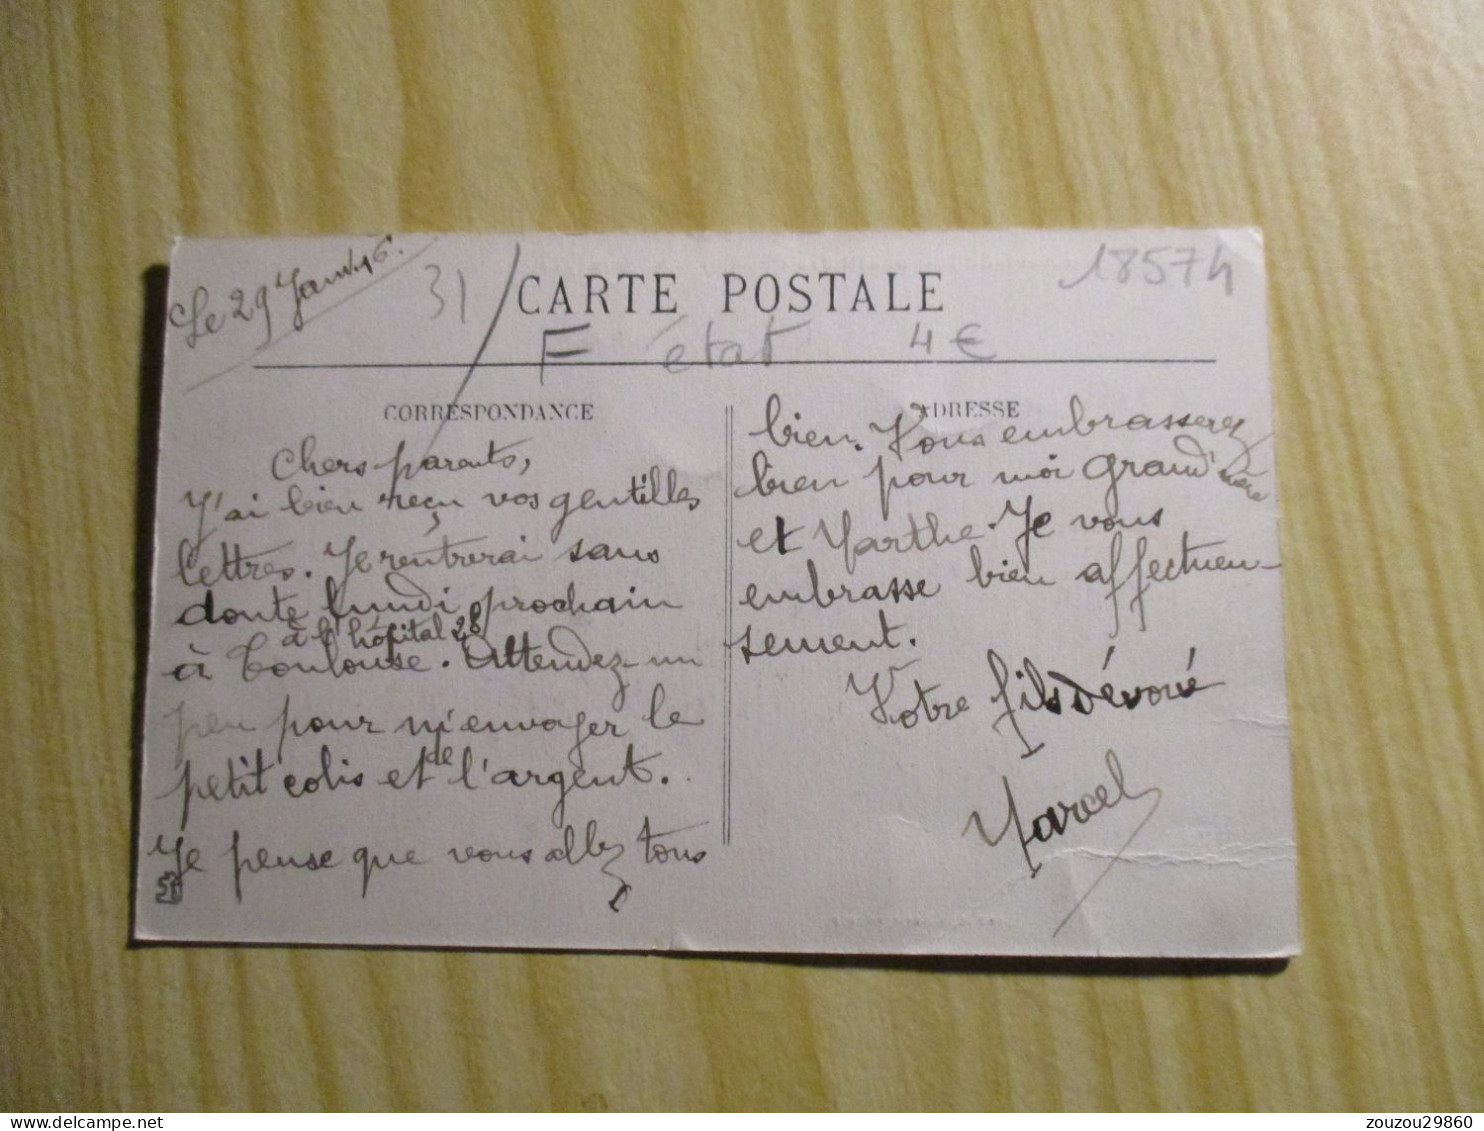 Le 29 Janv. 16.
31
CARTE POSTALE
18574
F état 4 €
CORRESPONDANCE
Chers parents,
J'ai bien reçu vos gentilles
lettres. Je rentrerai sans
doute lundi prochain
à l'hôpital 28
à Toulouse. Attendez un
peu pour m'envoyer le
petit colis et de l'argent.
Je pense que vous allez tous
ADRESSE
bien. Vous embrasserez
bien pour moi Grand'mère
et Marthe. Je vous
embrasse bien affectueu-
sement.
Votre fils dévoué
Marcel
zouzou29860